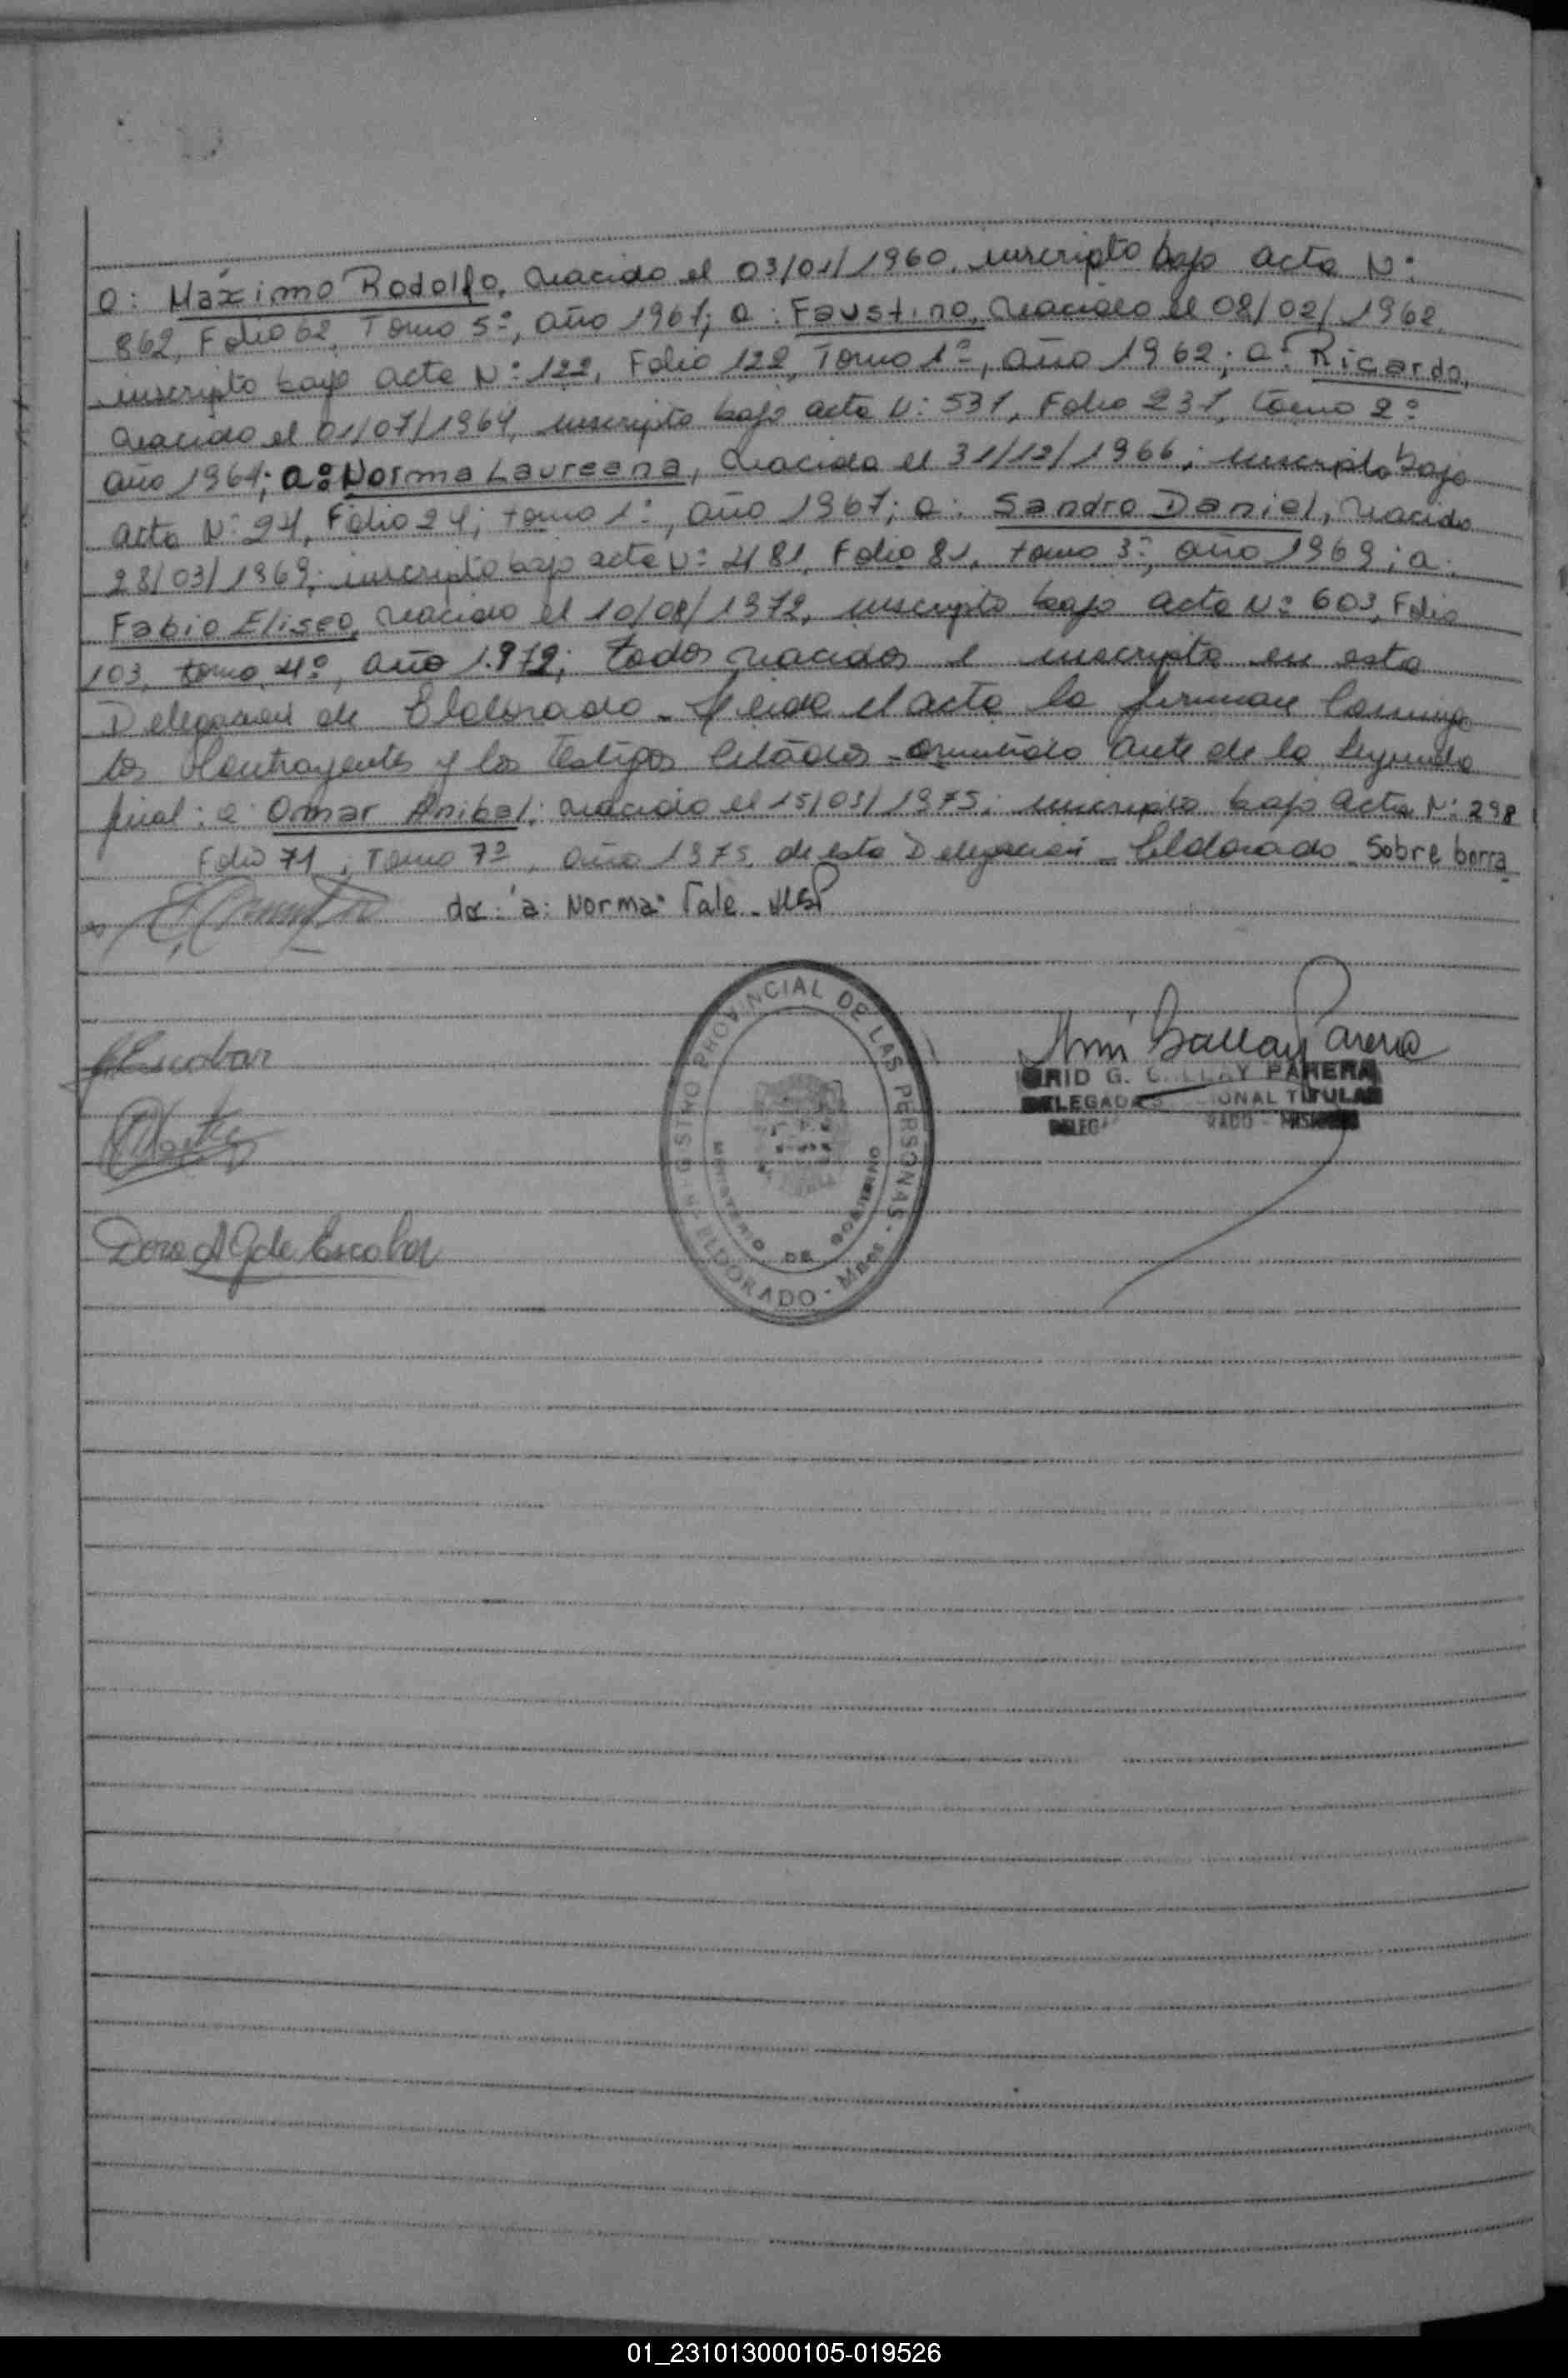 a: Máximo Rodolfo, nacido el 03/01/1960, inscripto bajo acta N:
862, Folio 62, Tomo 5º, año 1961; a: Faustino, nacido el 08/02/1962,
inscripto bajo acta N: 122, Folio 122, Tomo 1º, año 1962; a: Ricardo,
nacido el 01/07/1964, inscripto bajo acta N: 531, Folio 231, tomo 2º
año 1964; a: Norma Laureana, nacida el 31/12/1966; inscripta bajo
acta N: 24, Folio 24; tomo 1º, año 1967; a: Sandro Daniel, nacido
28/03/1969; inscripto bajo acta N: 481, Folio 81, tomo 3º, año 1969; a:
Fabio Eliseo, nacido el 10/08/1972, inscripto bajo acta N: 603, Folio
103, tomo 4º, año 1.972; todos nacidos e inscripto en esta
Delegación de Eldorado - Leida el acta la firman conmigo
los contrayentes y los testigos citados - omitido ante de la segunda
final: a: Omar Anibal; nacido el 15/03/1975; inscripto bajo acta N: 298
Folio 71; Tomo 7º, año 1975, de esta Delegación - Eldorado - Sobre borra
do: a: Norma: Vale - Mis
REGISTRO PROVINCIAL DE LAS PERSONAS - ELDORADO - Mnes -
MINISTERIO DE GOBIERNO
Escobar
RID G. G LLAY PARERA
DELEGADA IONAL TITULAR
DELEG RADO - MIS
Dora A G de Escobar
01_231013000105-019526